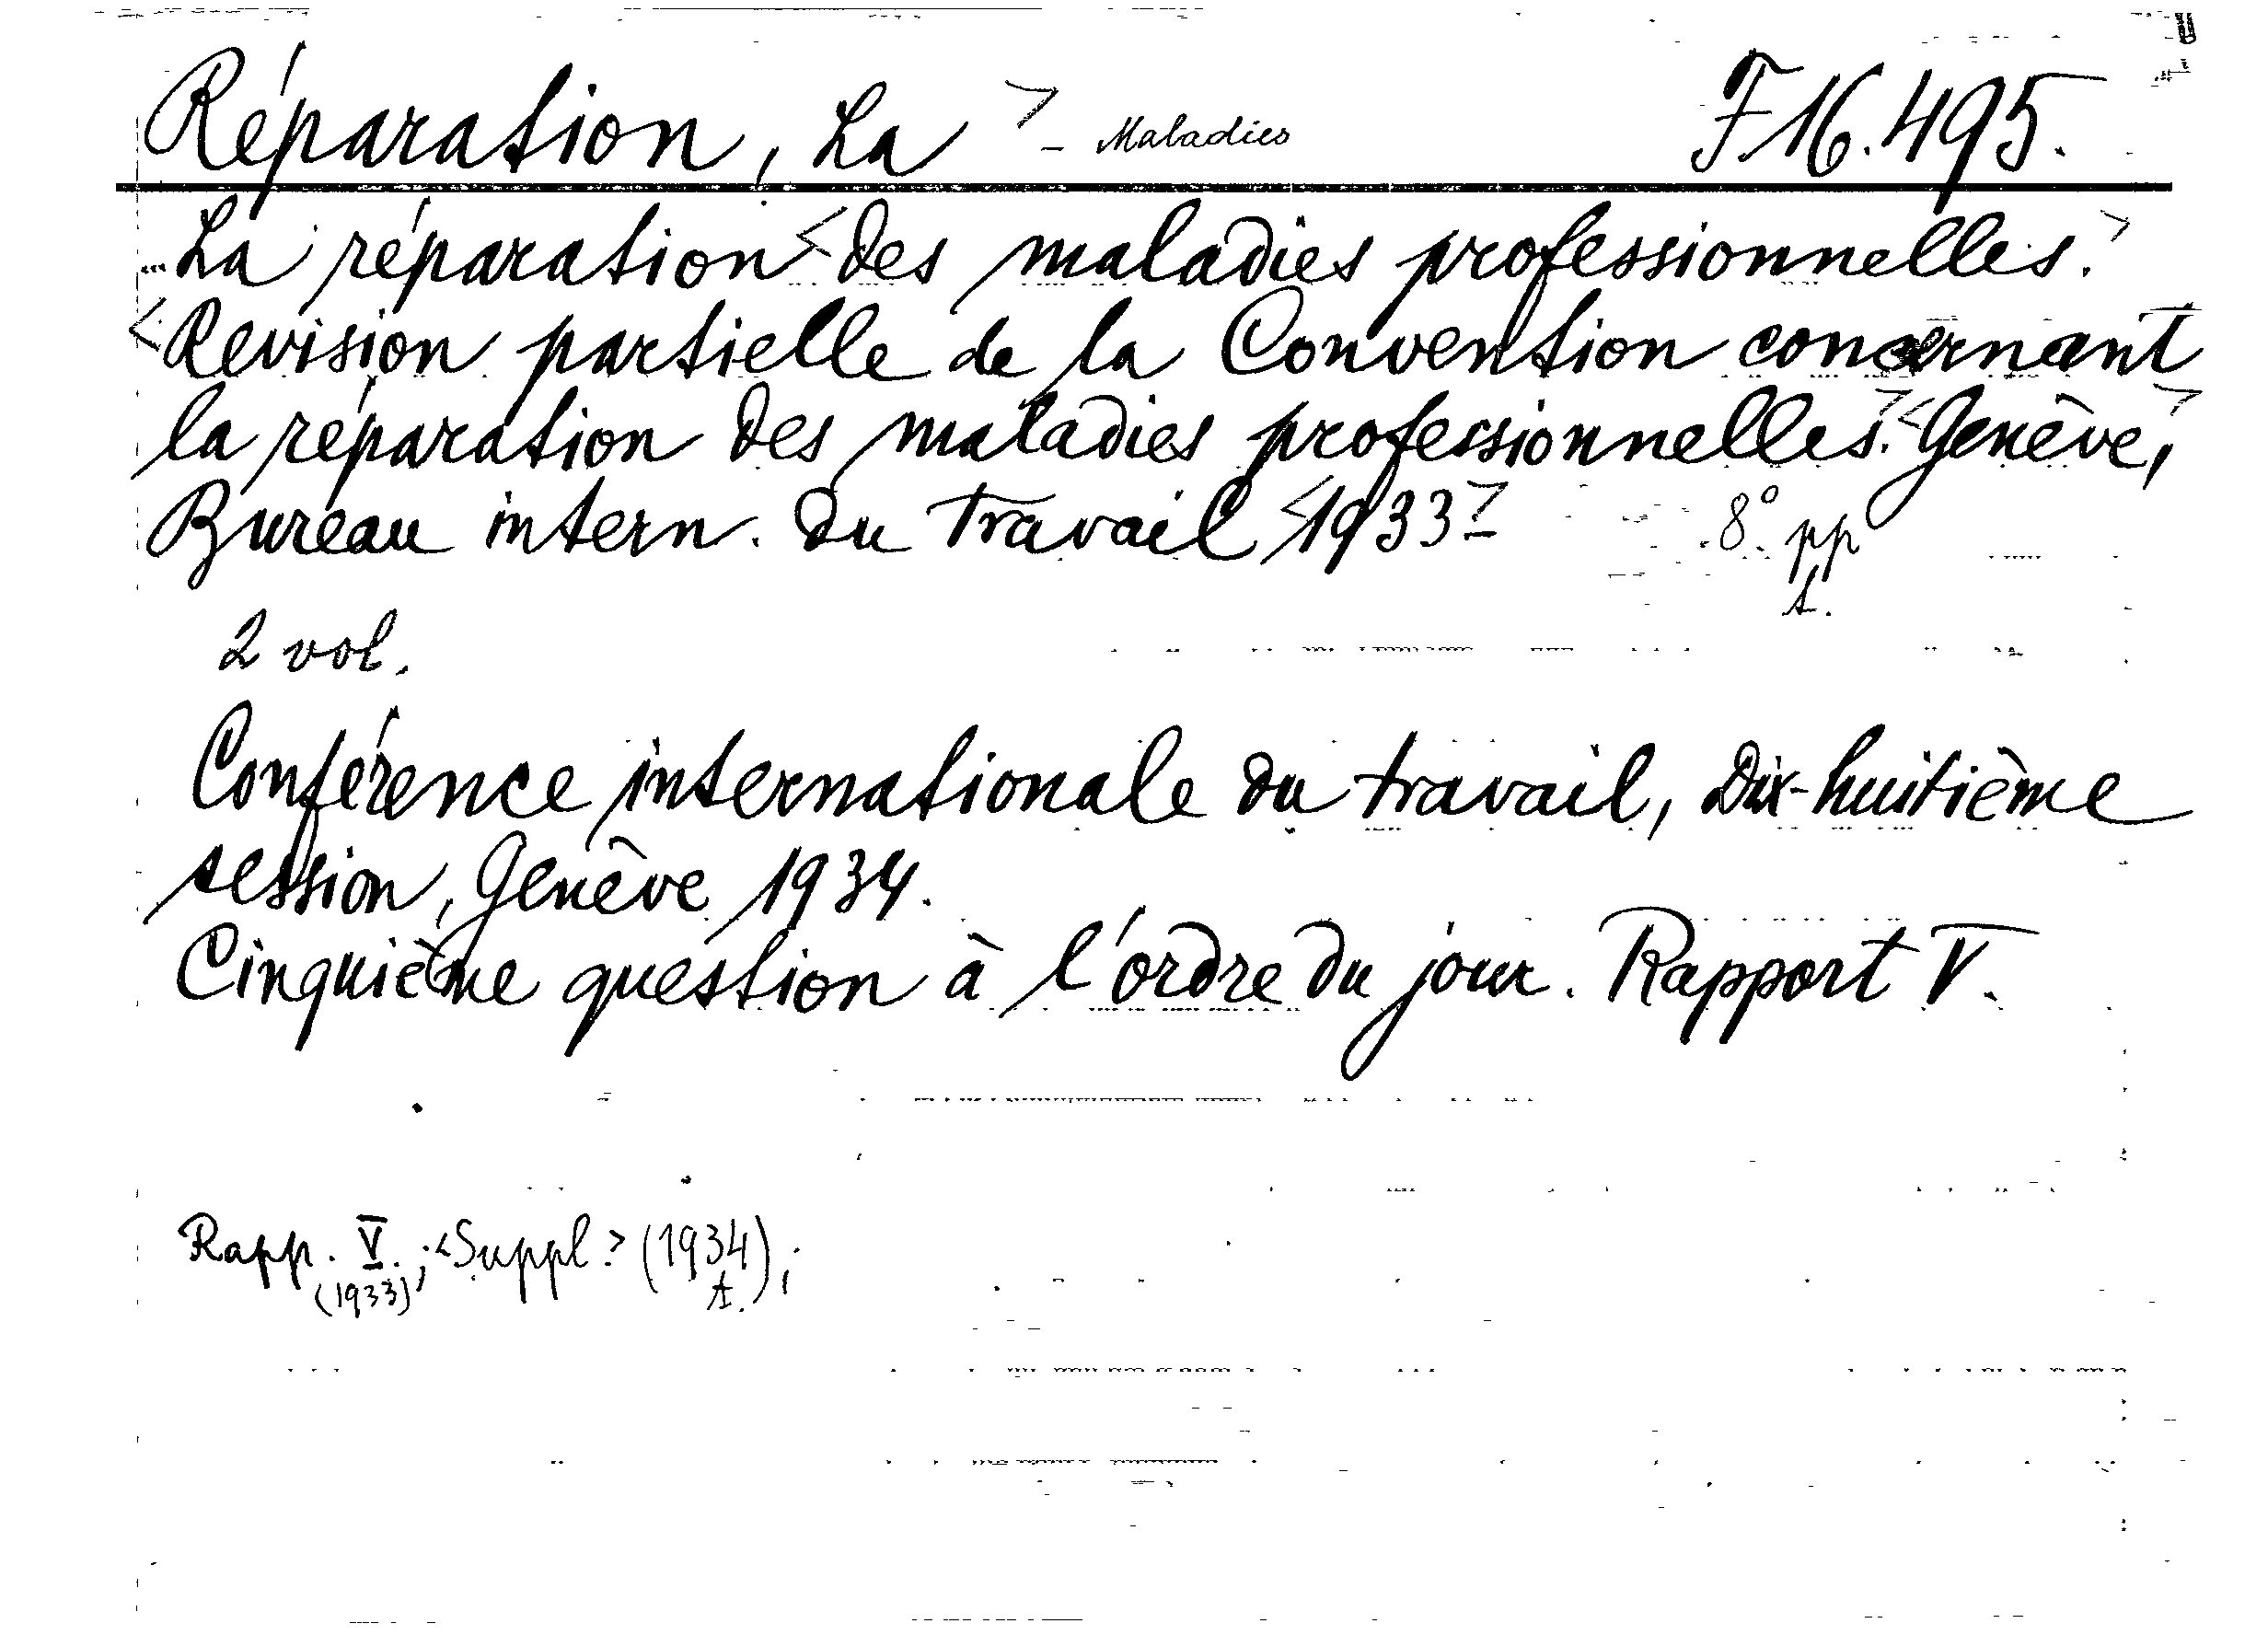 Réparation, La > - Maladies F 16.495.
La réparation < des maladies professionnelles. >
< Revision partielle de la Convention concernant
la réparation des maladies professionnelles. > < Genève, >
Bureau intern. du Travail < 1933 > - 8° pp
t.
2 vol.
Conférence internationale du travail, Dix-huitième
session, Genève 1934.
Cinquième question à l'ordre du jour. Rapport V.
Rapp. V. ; < Suppl. > (1934) ;
(1933) t.